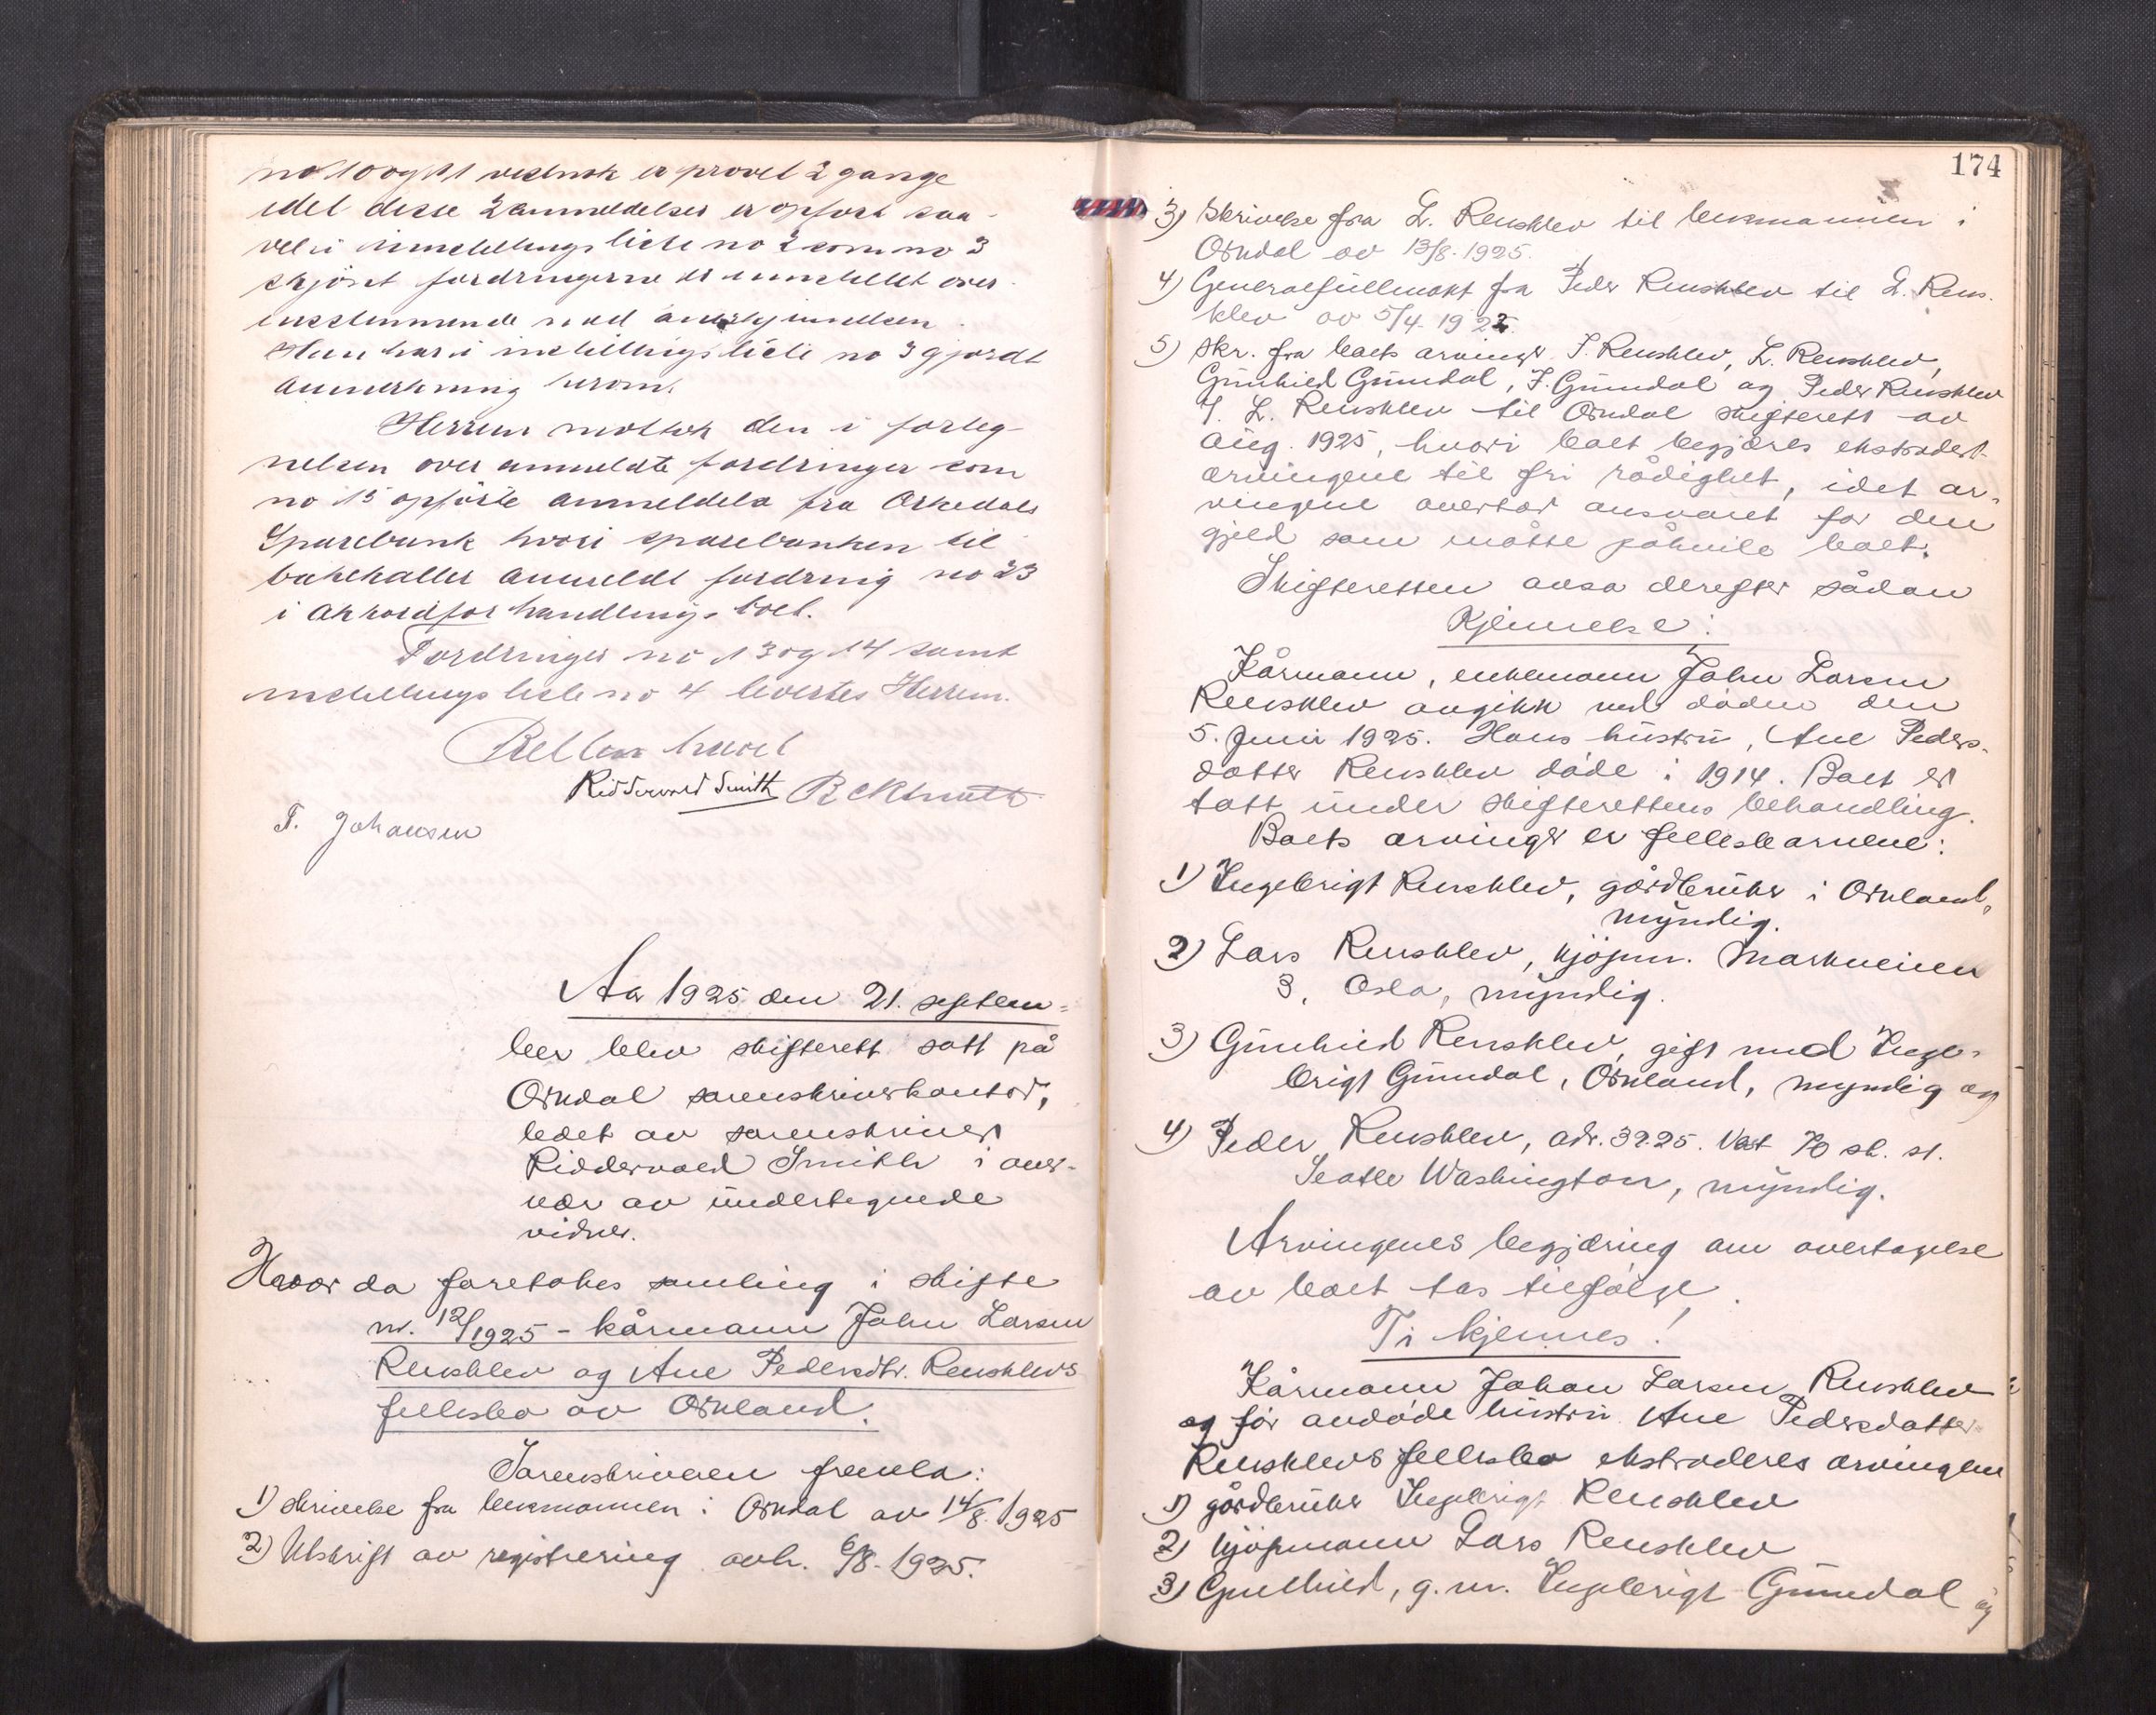 no 10 og 11 vedmok er prøvet 2 gange
idet disse 2 anmeldelser er opført saa-
vel i inndstillingsliste no 2 som no 3
skjönt fordringerne er innstillet over-
ensstemmende med
Han har i indstillingsliste no 3 gjordt
anmerkning herom.
Herrem mottok den i forteg-
nelsen over anmeldte fordringer som
no 15 opförte anmeldelse fra Orkedals
Sparebank hvori sparebanken til
bakekaller anmeldt fordring no 23
i akkordforhandlings boet.
Fordringer no 13 og 14 samt
indstillingsliste no 4 levertes Herrem.
Retten hævet
Riddervold Smith
T. Johansen
Aar 1925 den 21. septem=
ber blev skifterett satt på
Orkdal sorenskriverkontor,
ledet av sorenskriver
Riddervold Smith i over-
vær av undertegnede
vidner.
Hvor da foretokes samling i skifte
nr. 12/1925 - kårmann John Larsen
Rensklev og Ane Pedersdtr. Rensklevs
fellesbo av Orkland.
Sorenskriveren fremla:
1) skrivelse fra lensmannen i Orkdal av 14/8. 1925
2) Utskrift av registrering avh. 6/8. 1925.
174
3) Skrivelse fra L. Rensklev til lensmannen i
Orkdal av 13/8. 1925.
4) Generalfullmakt fra Peder Rensklev til L. Rens-
klev av 5/4. 1922.
5) Skr. fra boets arvinger I. Rensklev, L. Rensklev,
Gunhild Gumdal, I. Gumdal og Peder Rensklev
/ L. Rensklev til Orkdal skifterett av
aug. 1925, hvori boet begjæres ekstradert
arvingene til fri rådighet, idet ar-
vingene overtar ansvaret for den
gjeld som måtte påhvile boet.
Skifteretten avsa derefter sådan
Kjennelse:
Kårmann, enkemann John Larsen
Rensklev avgikk ved døden den
5. Juni 1925. Hans hustru, Ane Peders-
datter Rensklev døde i 1914. Boet er
tatt under skifterettens behandling.
Boets arvinger er fellesbarnene:
1) Ingebrigt Rensklev, gårdbruker i Orkland,
myndig.
2) Lars Rensklev, kjøpm. Markveien
3, Oslo, myndig.
3) Gunhild Rensklev, gift med Inge-
brigt Gumdal, Orkland, myndig og
4) Peder Rensklev, adr. 3925. Vest 70 st.
Seatle Washington, myndig.
Arvingenes begjæring om overtagelse
av boet tas tilfølge.
Ti kjennes!
Kårmann Johan Larsen Rensklev
og før avdøde hustru Ane Pedersdatter
Rensklevs fellesbo ekstraderes arvingene
1) gårdbruker Ingebrigt Rensklev
2) kjøpmann Lars Rensklev
3) Gunhild, g. m. Ingebrigt Gumdal og